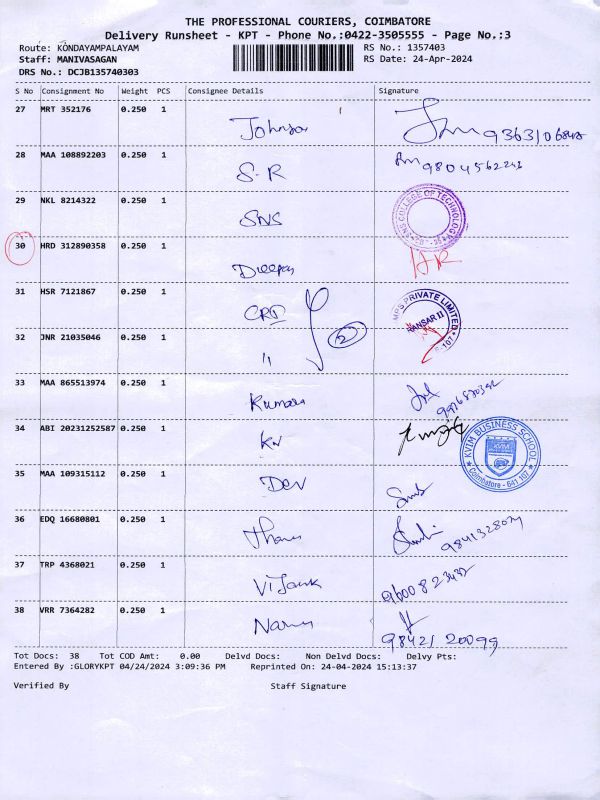 THE PROFESSIONAL COURIERS, COIMBATORE
Delivery Runsheet - KPT - Phone No.:0422-3505555 - Page No.:3
Route: KONDAYAMPALAYAM RS No.: 1357403
Staff: MANIVASAGAN RS Date: 24-Apr-2024
DRS No.: DCJB135740303
S No Consignment No Weight PCS Consignee Details Signature
27 MRT 352176 0.250 1 Johnson
28 MAA 108892203 0.250 1 S-R
29 NKL 8214322 0.250 1 SNS SNS COLLEGE OF TECHNOLOGY
30 HRD 312890358 0.250 1
31 HSR 7121867 0.250 1 PRIVATE LIMITED
32 JNR 21035046 0.250 1 " 2
33 MAA 865513974 0.250 1
34 ABI 20231252587 0.250 1 KV KVIM BUSINESS SCHOOL Coimbatore - 641 107
35 MAA 109315112 0.250 1 Dev
36 EDQ 16680801 0.250 1
37 TRP 4368021 0.250 1
38 VRR 7364282 0.250 1 98421 20099
Tot Docs: 38 Tot COD Amt: 0.00 Delvd Docs: Non Delvd Docs: Delvy Pts:
Entered By :GLORYKPT 04/24/2024 3:09:36 PM Reprinted On: 24-04-2024 15:13:37
Verified By Staff Signature